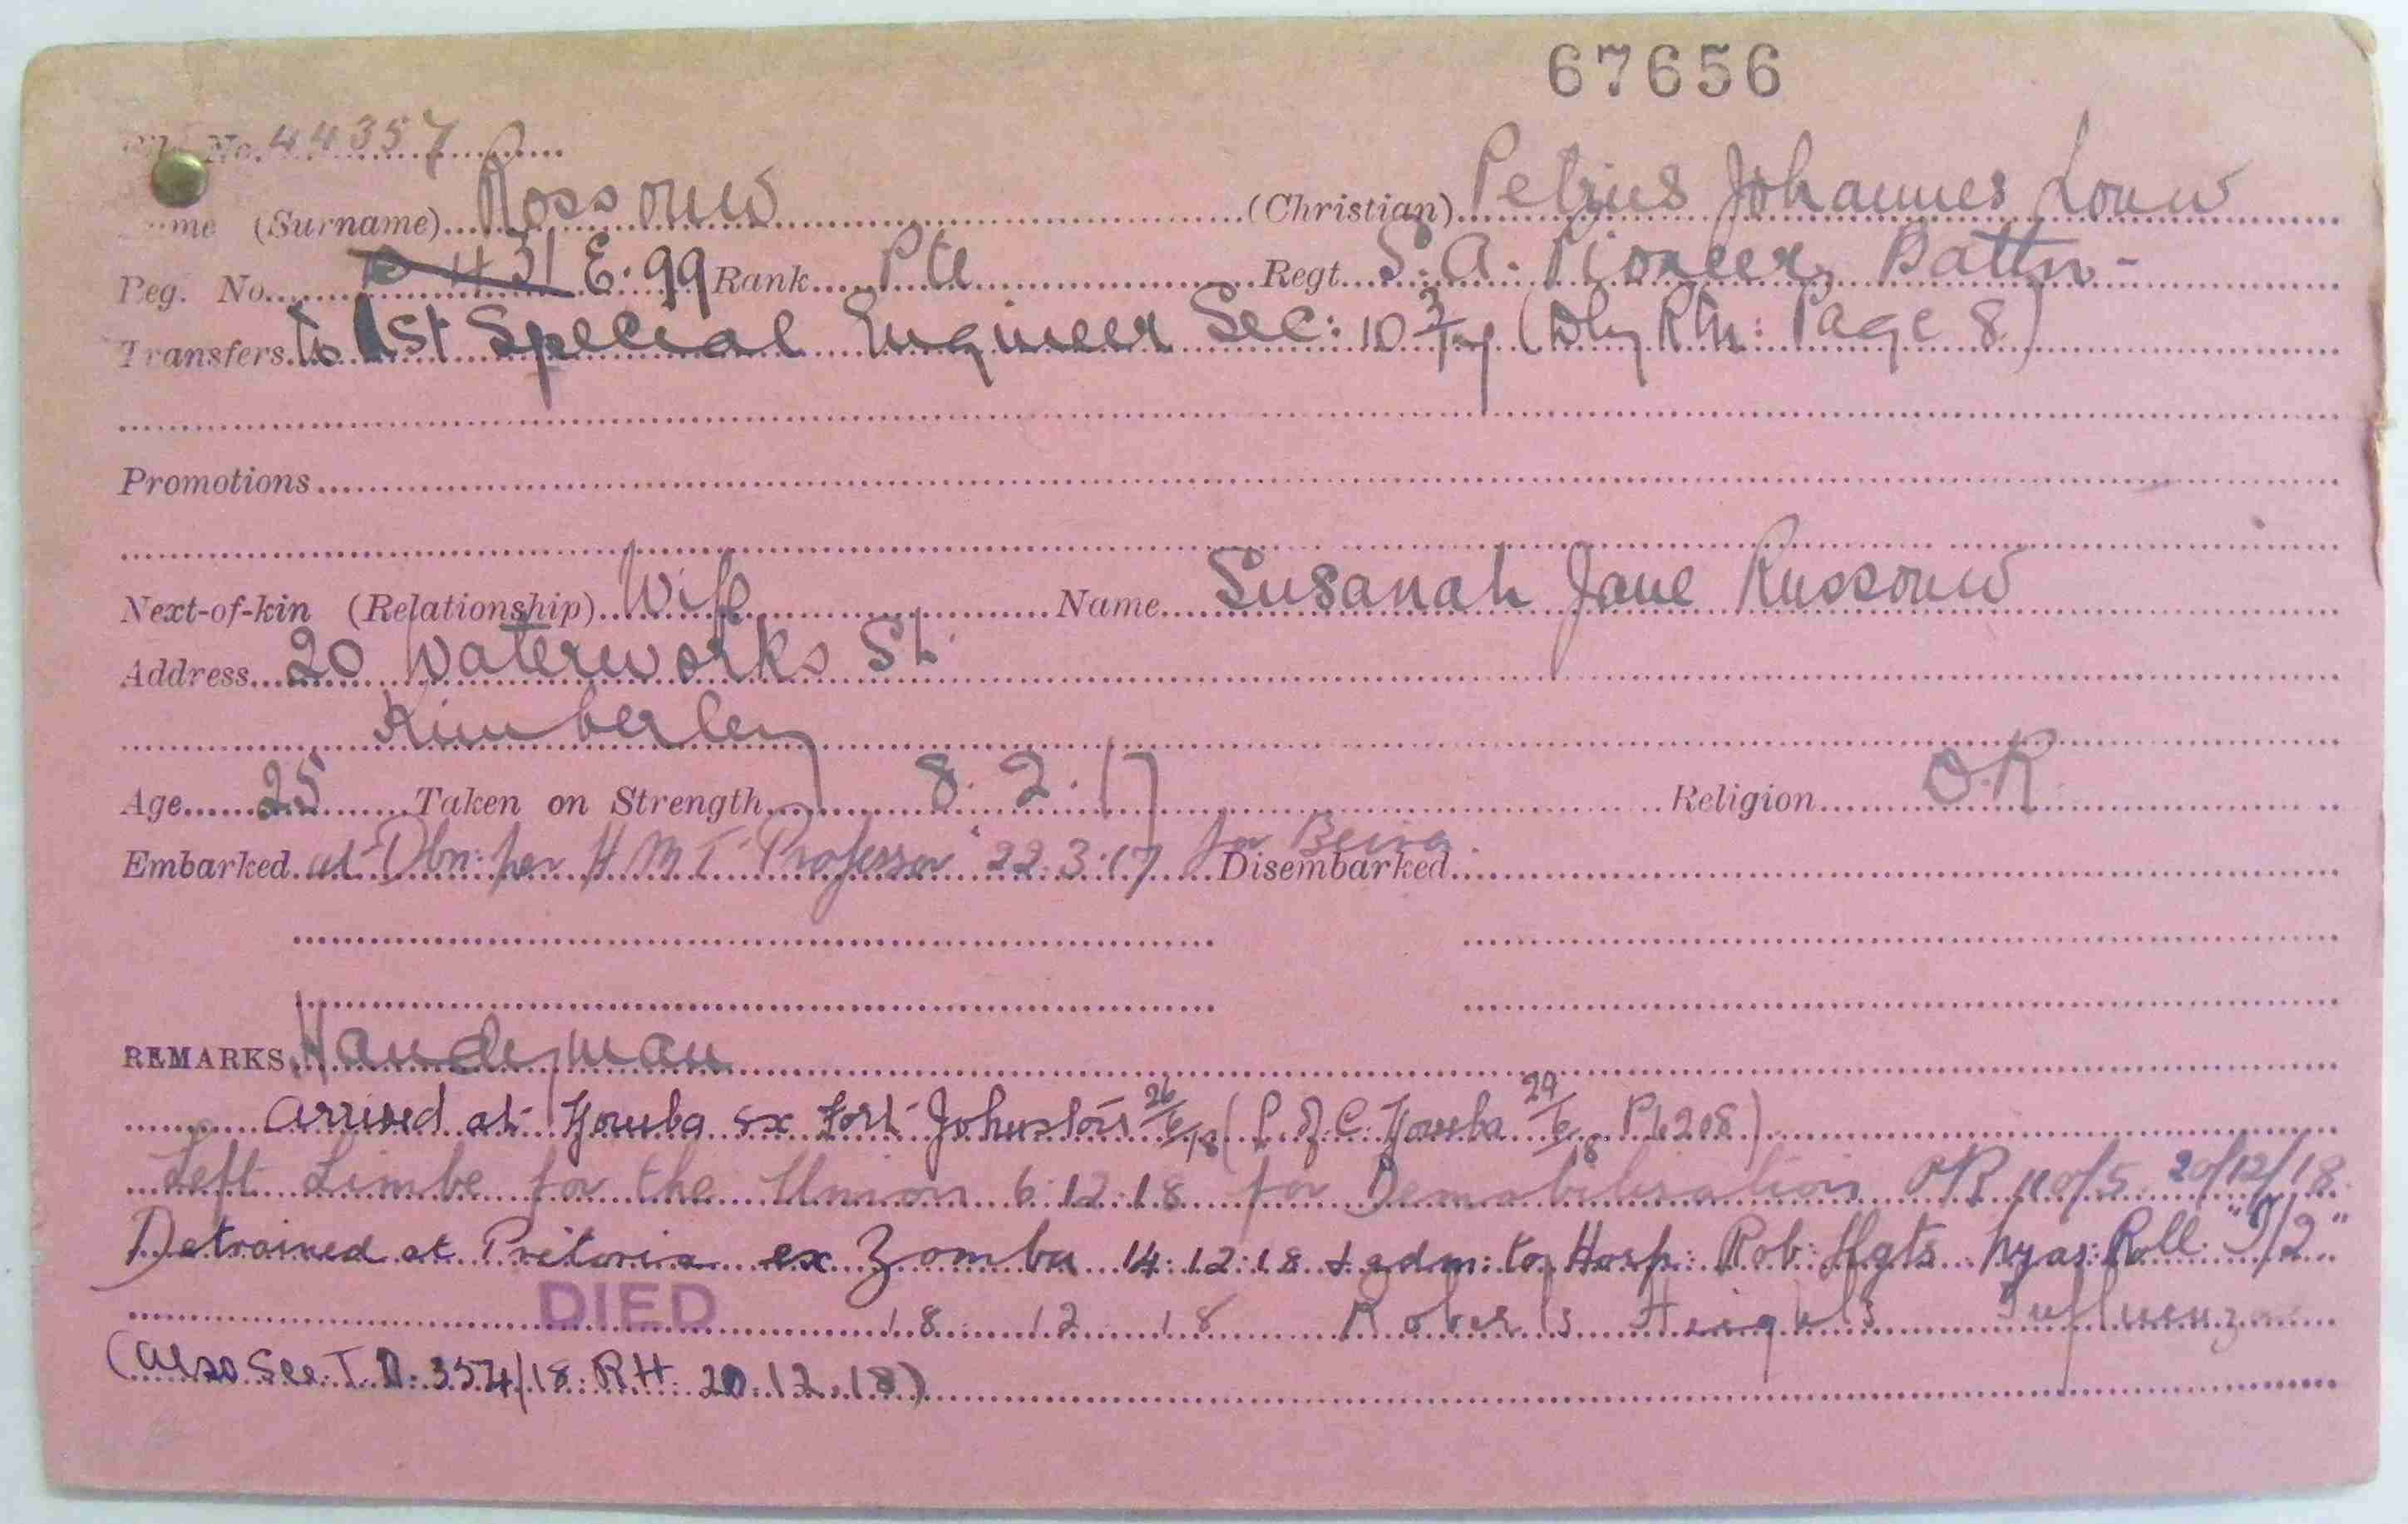 67656
File No. 44357
Name (Surname) Rossouw (Christian) Petrus Johannes Louw
Reg. No. P 431 E. 99 Rank Pte Regt. S. A. Pioneer Battn -
Transfers to 1st Special Engineer Sec: 10 3/17 (Dly Rtn: Page 8)
Promotions
Next-of-kin (Relationship) Wife Name Susanah Jane Russouw
Address 20 Waterworks St.
Kimberley
Age 25 Taken on Strength 8. 2. 17 Religion D.R.
Embarked at Dbn: per H M T "Professor" 22.3.17 for Beira. Disembarked
REMARKS Handyman
Arrived at Zomba ex Fort Johnston 26/6/18 (P.J.C. Zomba 29/6/18 Pt 208)
Left Limbe for the Union 6.12.18 for Demobilisation 20/12/18.
Detrained at Pretoria ex Zomba 14.12.18 & adm: to Hosp: Rob: Hgts. Nyas: Roll
DIED 18 12 18 Roberts Heights Influenza
(Also See. T. D. 354/18. RH. 20.12.18)